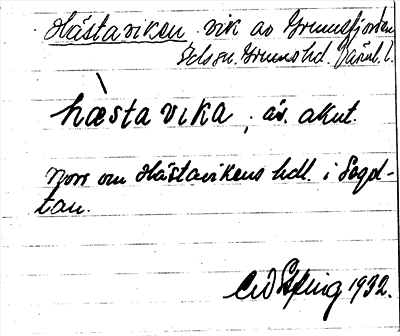 Hästaviken vik av Grumsfjorden
Grums hd. Värml. l.
hæ̀stavɩka, äv. akut.
Norr om Hästavikens hdl. i Segol-
tan.
1932.